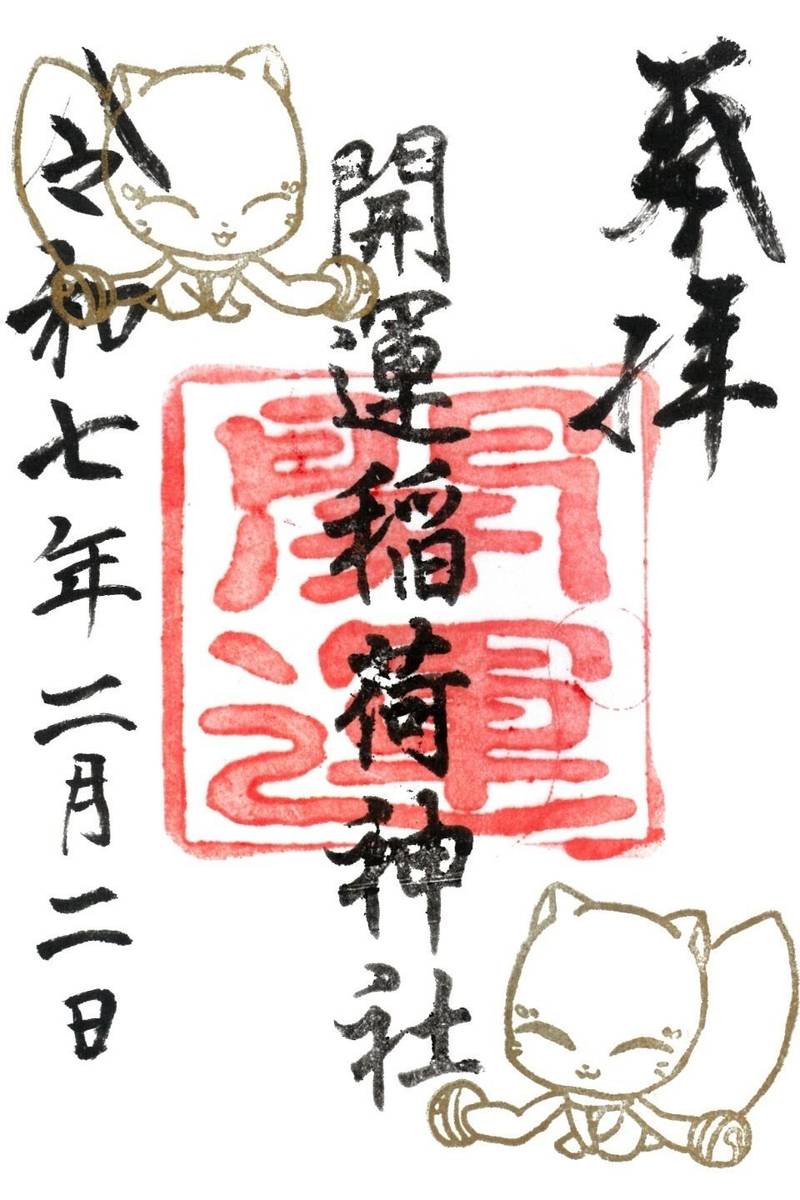 奉拝
開運稲荷神社
開運
令和七年二月二日